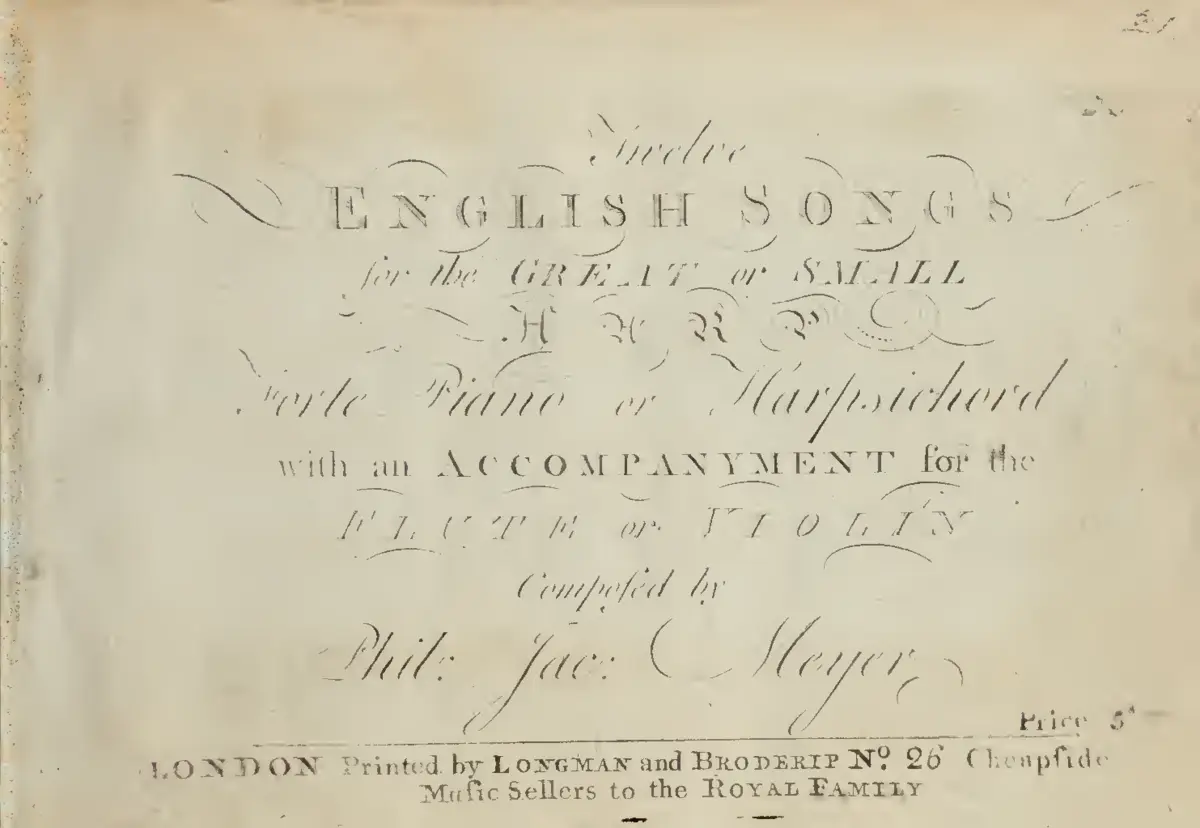 Twelve
ENGLISH SONGS
for the GREAT or SMALL
HARP
Forte Piano or Harpsichord
with an ACCOMPANYMENT for the
FLUTE or VIOLIN
Compoſed by
Phil: Jac: Meyer
Price 5ˢ
LONDON Printed by LONGMAN and BRODERIP Nº 26 Cheapſide
Muſic Sellers to the ROYAL FAMILY